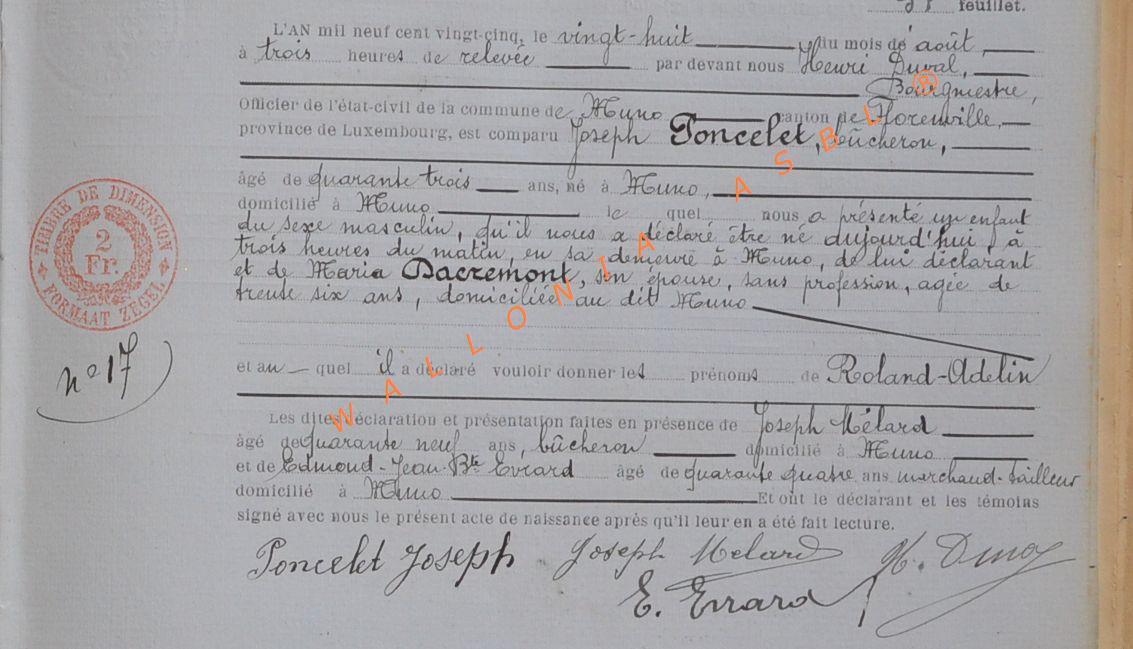 feuillet.
L'AN mil neuf cent vingt-cinq, le vingt-huit du mois de août,
à trois heures de relevée par devant nous Henri Duval,
Bourgmestre,
Officier de l'état-civil de la commune de Muno canton de Florenville,
province de Luxembourg, est comparu Joseph Poncelet, bûcheron,
âgé de quarante trois ans, né à Muno,
domicilié à Muno le quel nous a présenté un enfant
du sexe masculin, qu'il nous a déclaré être né aujourd'hui, à
trois heures du matin, en sa demeure à Muno, de lui déclarant
et de Maria Dacremont, son épouse, sans profession, agée de
trente six ans, domiciliée au dit Muno
TIMBRE DE DIMENSION
2
Fr.
FORMAAT ZEGEL
n° 17
et au quel il a déclaré vouloir donner les prénoms de Roland-Adelin
Les dites déclaration et présentation faites en présence de Joseph Mélard
âgé de quarante neuf ans, bûcheron domicilié à Muno
et de Edmond-Jean-Bte Evrard âgé de quarante quatre ans marchand-tailleur
domicilié à Muno Et ont le déclarant et les témoins
signé avec nous le présent acte de naissance après qu'il leur en a été fait lecture.
Poncelet Joseph Joseph Melard H. Duval
E. Evrard
WALLONIA ASBL ®